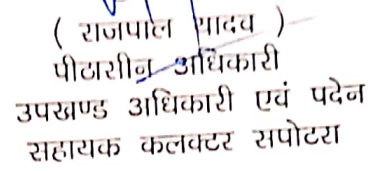 ( राजपाल यादव )
पीठासीन अधिकारी
उपखण्ड अधिकारी एवं पदेन
सहायक कलक्टर सपोटरा